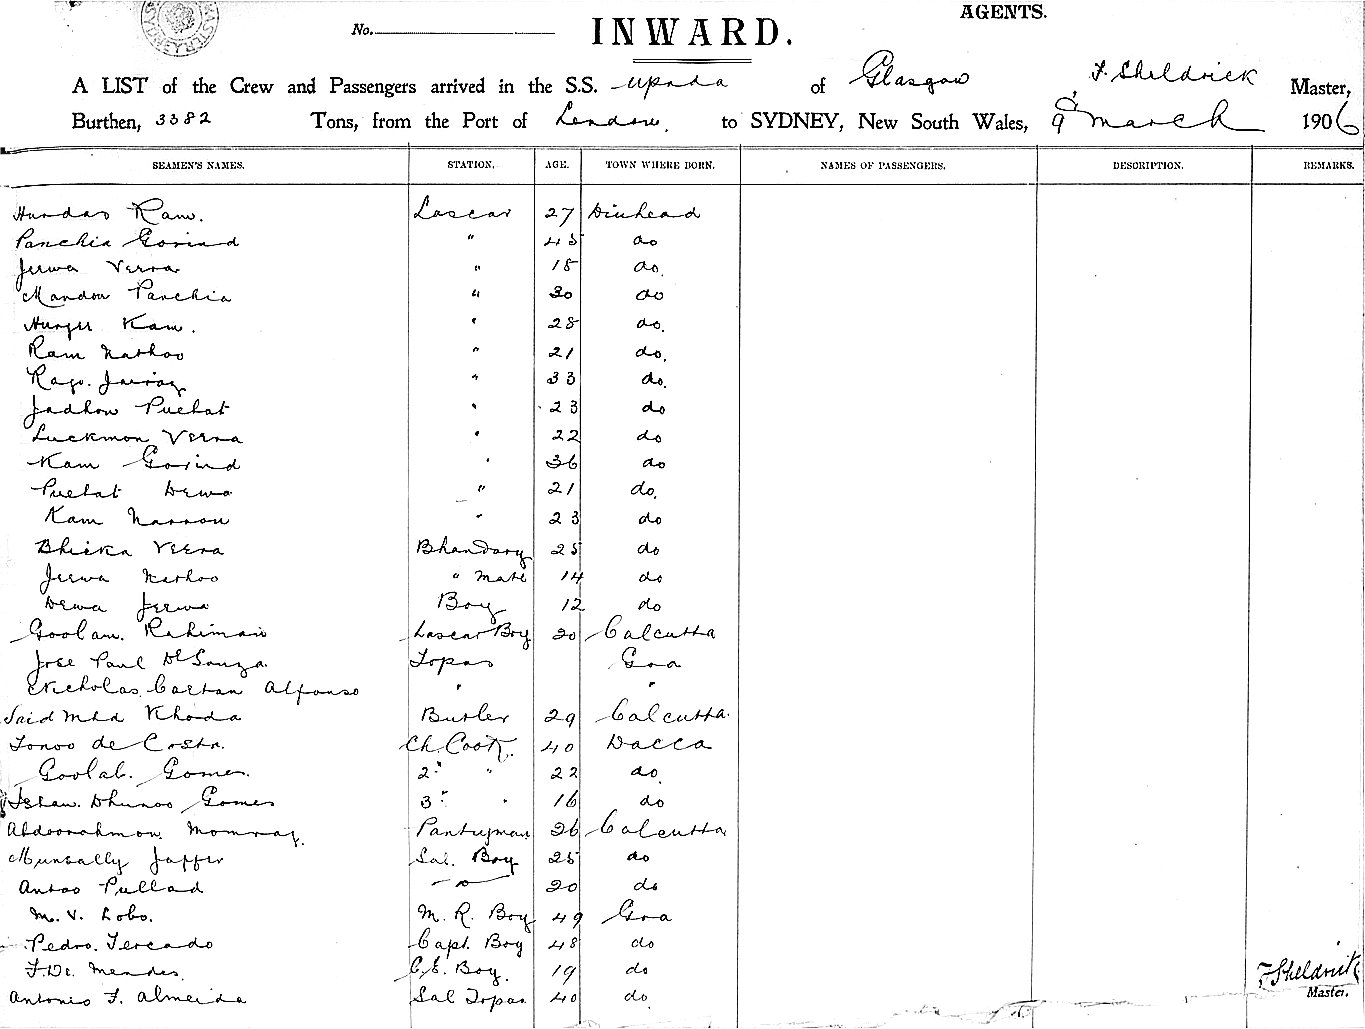 AGENTS.
No.
INWARD.
A LIST of the Crew and Passengers arrived in the S.S. Upada of Glasgow, F. Sheldrick Master,
Burthen, 3382 Tons, from the Port of London, to SYDNEY, New South Wales, 9th March 1906
SEAMEN'S NAMES. STATION. AGE. TOWN WHERE BORN. NAMES OF PASSENGERS. DESCRIPTION. REMARKS.
Ram. Lascar 27
Panchia Govind " 45 do
Jeewa Veera " 18 do.
Mandon Panchia " 30 do
Ram. " 28 do.
Ram Nathoo " 21 do.
33 do.
Jadhow Puchat " 23 do
Luckmon Veera " 22 do
Ram Govind " 36 do
Puchat Dewa " 21 do.
Ram " 23 do
Bhicka Veera Bhandary 25 do
Jeewa Nathoo " Mate 14 do
Dewa Jeewa Boy 12 do
Goolam Rahiman Lascar Boy 20 Calcutta
Jose Paul De Souza. Topas Goa
Nicholas Caetan Alfonso " "
Said Mhd Khoda Butler 29 Calcutta.
de Costa. Ch. Cook. 40 Dacca
Goolab. Gomes. 2" " 22 do.
Gomes 3" " 16 do
Abdoorahmon Pantryman 26 Calcutta
Munsally Jaffer Sal. Boy 25 do
Antoo Pullad 20 do
M. V. Lobo. M. R. Boy 49 Goa
Pedro. Tercado Capt. Boy 48 do
F. De. Mendes. C. E. Boy. 19 do
F Sheldrick
Master.
Antonio F. Almeida Sal Topas 40 do.